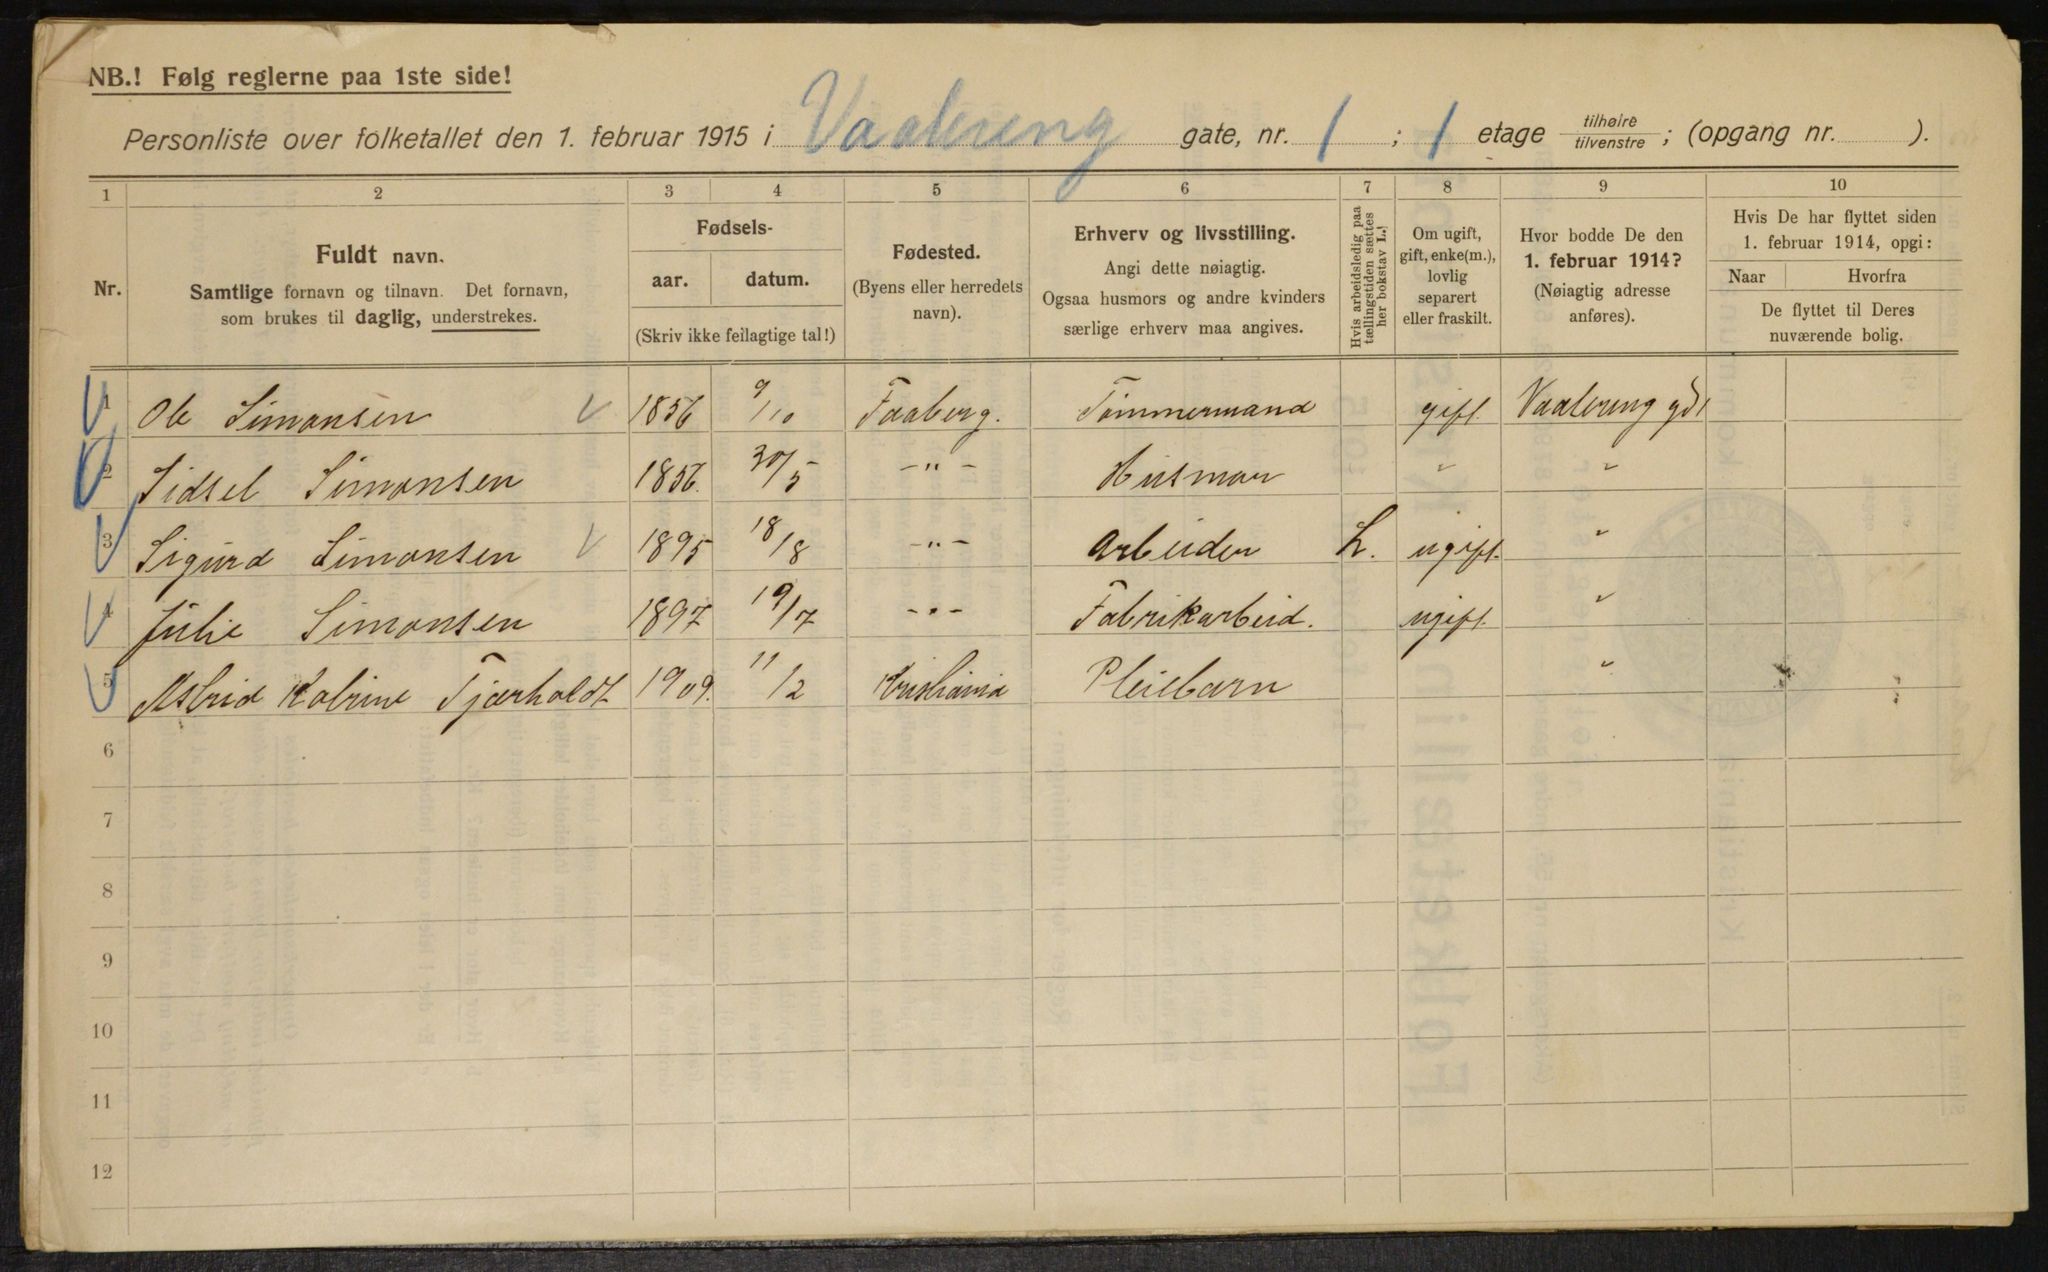 NB.! Følg reglerne paa 1ste side!
Personliste over folketallet den 1. februar 1915 i Vaalereng gate, nr. 1 ; 1 etage tilhøire tilvenstre ; (opgang nr. ).
1 2 3 4 5 6 7 8 9 10
Nr.
Fuldt navn.
Samtlige fornavn og tilnavn. Det fornavn,
som brukes til daglig, understrekes.
Fødsels-
aar. datum.
(Skriv ikke feilagtige tal!)
Fødested.
(Byens eller herredets
navn).
Erhverv og livsstilling.
Angi dette nøiagtig.
Ogsaa husmors og andre kvinders
særlige erhverv maa angives.
Hvis arbeidsledig paa
tællingstiden sættes
her bokstav L.
Om ugift,
gift, enke(m.),
lovlig
separert
eller fraskilt.
Hvor bodde De den
1. februar 1914?
(Nøiagtig adresse
anføres).
Hvis De har flyttet siden
1. februar 1914, opgi:
Naar Hvorfra
De flyttet til Deres
nuværende bolig.
1 Ole Simonsen 1856 9/10 Faaberg. Tømmermand gift. Vaalereng gd 1
2 Sidsel Simonsen 1856. 30/5 -"- Husmor " "
3 Sigurd Simonsen 1895 18/8 -"- Arbeider L. ugift. "
4 Julie Simonsen 1897 19/7 -"- Fabrikarbeid. ugift. "
5 Astrid Katrine Tjærholdt 1909. 11/2 Kristiania Pleiebarn "
6
7
8
9
10
11
12